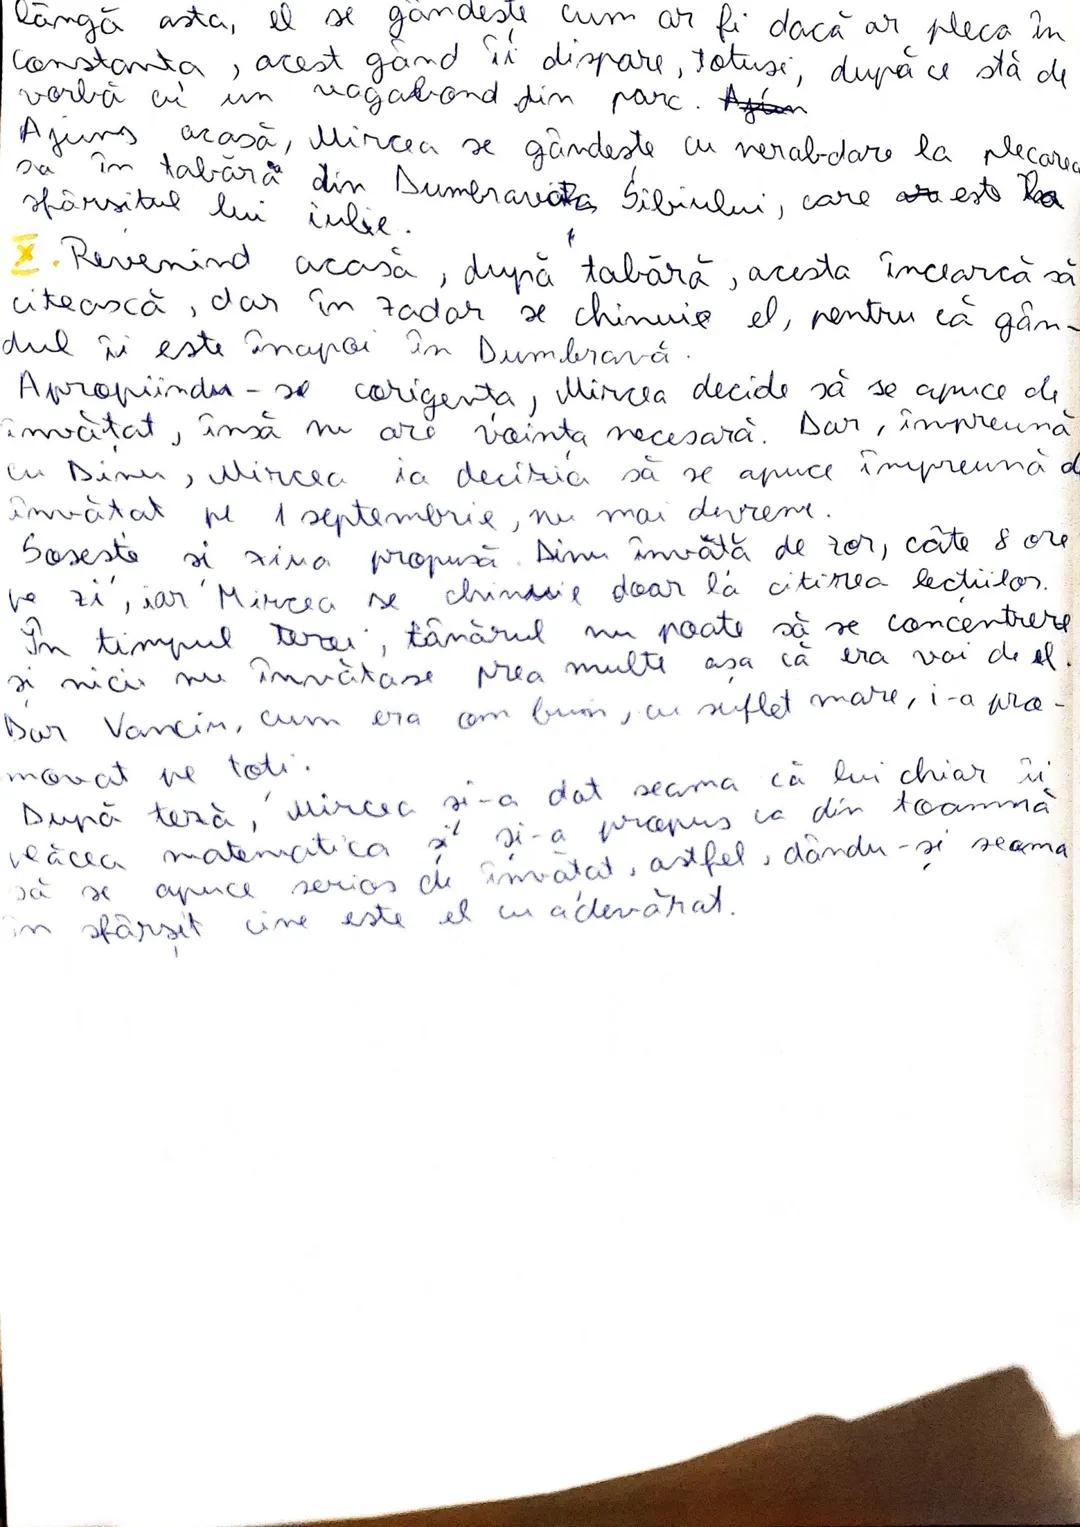 lângă asta, el se gândește cum ar fi dacă ar pleca în
Constanța, acest gând îi dispare, totuși, după ce stă de
vorbă cu un vagabond din parc.
Ajuns acasă, Mircea se gândește cu nerabdare la plecarea
sa în tabără din Dumbravata Sibiului, care este la
sfârsitul lui iulie.
X. Revenind acasă, după tabără, acesta încearcă să
citească, dar în zadar se chinuie el, pentru că gân-
dul îi este înapoi în Dumbravă.
Apropiindu-se corigența, Mircea decide să se apuce de
învățat, însă nu are voința necesară. Dar, împreună
cu Dinu, Mircea ia decizia să se apuce împreună d
învățat pe 1 septembrie, nu mai devreme.
Sosește și ziua propusă. Dinu învăță de zor, câte 8 ore
pe zi, iar Mircea se chinuie doar la citirea lecțiilor.
În timpul tezei, tânărul nu poate să se concentreze
și nici nu învățase prea multe așa că era vai de el.
Dar Vanciu, cum era om bun, cu suflet mare, i-a pro-
movat pe toți.
După teză, Mircea și-a dat seama că lui chiar îi
plăcea matematica și și-a propus ca din toamnă
să se apuce serios de învățat, astfel, dându-și seama
în sfârșit cine este el cu adevărat.